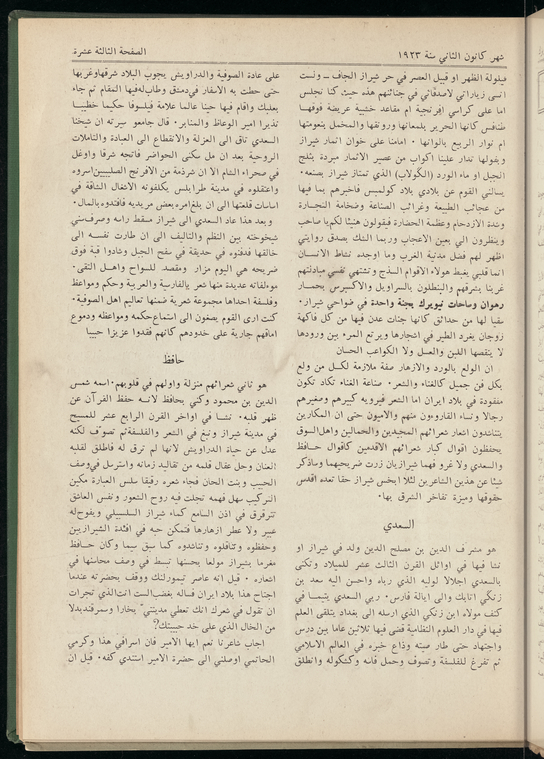 شهر كانون الثاني سنة ١٩٢٣
الصفحة الثالثة عشرة
قيلولة الظهر او قبيل العصر في حر شيراز الجاف ــ ولست
انسى زياراتي لاصدقائي في جنائنهم هذه حيث كنا نجلس
اما على كراسي افرنجية ام مقاعد خشبية عريضة فوقها
طنافس كانها الحرير بلمعانها ورونقها والمخمل بنعومتها
ام نوار الربيع بالوانها . امامنا على خوان اثمار شيراز
وبقولها تدار علينا اكواب من عصير الاثمار مبردة بثلج
الجبل او ماء الورد (الگولاب) الذي تمتاز شيراز بصنعه.
يسالني القوم عن بلادي بلاد كولمبس فاخبرهم بما فيها
من عجائب الطبيعة وغرائب الصناعة وضخامة التجارة
وشدة الازدحام وعظمة الحضارة فيقولون هنيئا لكم يا صاحب
وينظرون الي بعين الاعجاب وربما الشك بصدق روايتي
اظهر لهم فضل مدنية الغرب وما اوجده نشاط الانسان
انما قلبي يغبط هولاء الاقوام السذج وتشتهي نفسي مبادلتهم
غربنا بشرقهم والبنطلون بالسراويل والاكسبرس بحمار
رهوان وساحات نيويرك بجنة واحدة في ضواحي شيراز.
سقيا لها من حدائق كانها جنات عدن فيها من كل فاكهة
زوجان يغرد الطير في اشجارها ويرتع المرء بين ورودها
لا ينقصها اللبن والعسل ولا الكواعب الحسان
ان الولع بالورد والازهار صفة ملازمة لكل من ولع
بكل فن جميل كالغناء والشعر . صناعة الغناء تكاد تكون
مفقودة في بلاد ايران اما الشعر فيرويه كبيرهم وصغيرهم
رجالا ونساء القارءون منهم والاميون حتى ان المكارين
يتناشدون اشعار شعرائهم المجيدين والحمالين واهل السوق
يحفظون اقوال كبار شعرائهم الاقدمين كاقوال حافظ
والسعدي ولا غرو فهما شيرازيان زرت ضريحيهما وساذكر
شيئا عن هذين الشاعرين لئلا ابخس شيراز حقا تعده اقدس
حقوقها وميزة تفاخر الشرق بها.
السعدي
هو مشرف الدين بن مصلح الدين ولد في شيراز او
نشا فيها في اوائل القرن الثالث عشر للميلاد وتكنى
بالسعدي اجلالا لوليه الذي رباه واحسن اليه سعد بن
زنگي اتابك والي ايالة فارس. ربي السعدي يتيما في
كنف مولاه ابن زنگي الذي ارسله الى بغداد يتلقى العلم
فيها في دار العلوم النظامية قضى فيها ثلاثين عاما بين درس
واجتهاد حتى طار صيته وذاع خبره في العالم الاسلامي
ثم تفرغ للفلسفة وتصوف وحمل فاسه وكشكوله وانطلق
على عادة الصوفية والدراويش يجوب البلاد شرقها وغربها
حتى حطت به الاسفار في دمشق وطاب له فيها المقام ثم جاء
بعلبك واقام فيها حينا عالما علامة فيلسوفا حكيما خطيبا
نذيرا امير الوعاظ والمنابر. قال جامعو سيرته ان شيخنا
السعدي تاق الى العزلة والانقطاع الى العبادة والتاملات
الروحية بعد ان مل سكنى الحواضر فاتجه شرقا واوغل
في صحراء الشام الا ان شرذمة من الافرنج الصليبيين اسروه
واعتقلوه في مدينة طرابلس يكلفونه الاشغال الشاقة في
اساءات قلعتها الى ان بلغ امره بعض مريديه فافتدوه بالمال.
وبعد هذا عاد السعدي الى شيراز مسقط راسه وصرف سني
شيخوخته بين النظم والتاليف الى ان طارت نفسه الى
خالقها فدفنوه في حديقة في سفح الجبل وشادوا قبة فوق
ضريحه هي اليوم مزار ومقصد للسواح واهل التقى.
مولفاته عديدة منها شعر بالفارسية والعربية وحكم ومواعظ
وفلسفة احداها مجموعة شعرية ضمنها تعاليم اهل الصوفية.
كنت ارى القوم يصغون الى استماع حكمه ومواعظه ودموع
اماقهم جارية على خدودهم كانهم فقدوا عزيزا حبيبا
حافظ
هو ثاني شعرائهم منزلة واولهم في قلوبهم. اسمه شمس
الدين بن محمود وكني بحافظ لانه حفظ القرآن عن
ظهر قلبه. نشا في اواخر القرن الرابع عشر للمسيح
في مدينة شيراز ونبغ في الشعر والفلسفة ثم تصوف لكنه
عدل عن حياة الدراويش لانها لم ترق له فاطلق لقلبه
العنان وحل عقال قلمه من تقاليد زمانه واسترسل في وصف
الحبيب وبنت الحان فجاء شعره رقيقا سلس العبارة مكين
التركيب سهل فهمه تجلت فيه روح الشعور ونفس العاشق
تترقرق في اذن السامع كماء شيراز السلسبيلي ويفوح له
عبير ولا عطر ازهارها فتمكن حبه في افئدة الشيرازيين
وحفظوه وتناقلوه وتناشدوه كما سبق سيما وكان حافظ
مغرما بشيراز مولعا بحسنها تبسط في وصف محاسنها في
اشعاره . قيل انه عاصر تيمورلنك ووقف بحضرته عندما
اجتاح هذا بلاد ايران فساله بغضب الست انت الذي تجرات
ان تقول في شعرك انك تعطي مدينتي بخارا وسمرقند بدلا
من الخال الذي على خد حبيبتك؟
اجاب شاعرنا نعم ايها الامير فان اسرافي هذا وكرمي
الحاتمي اوصلني الى حضرة الامير استندي كفه. قيل ان